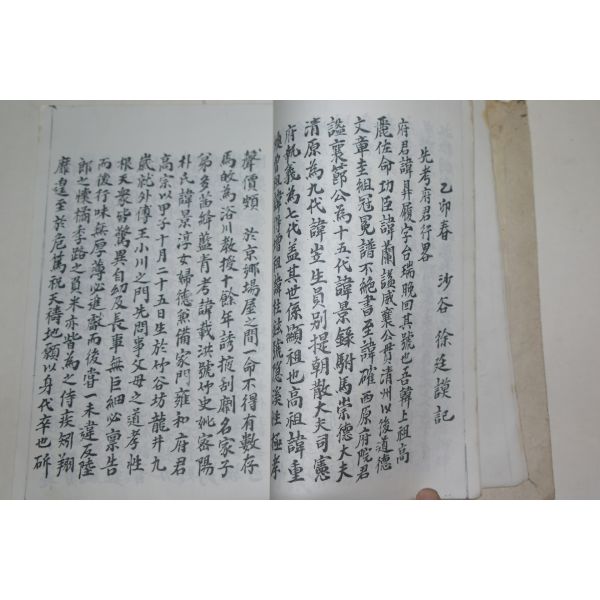 乙卯春 沙谷 徐廷謨記
先考府君行畧
府君諱昇履字台瑞晚回其號也吾韓上祖高
麗佐命功臣諱蘭諡威襄公貫清州以後道德
文章圭組冠冕譜不絶書至諱確西原府院君
諡襄節公為十五代諱景錄駙馬崇德大夫
清原為九代諱岦生員別提朝散大夫司憲
府執義為七代益其世係顯祖也高祖諱重
曾祖諱 祖諱
聲價頗 於京鄉場屋之間一命不得有數存
馬敀為洛川教授十餘年誇掖刮劘名家子
弟多菑絳藍青考諱載洪號坤史妣密陽
朴氏諱景淳女婦德兼備家門雍和府君
高宗以甲子十月二十五日生於竹谷坊龍井九
歲就外傅王小川之門先問事父母之道孝性
根天衆皆驚異自幼及長事無巨細必稟告
而後行味無厚薄必進獻而後嘗一未違反陸
郎之懷橘季路之負米亦皆為之侍疾矧翔
靡遑至於危篤祝天禱地願以身代卒也斫